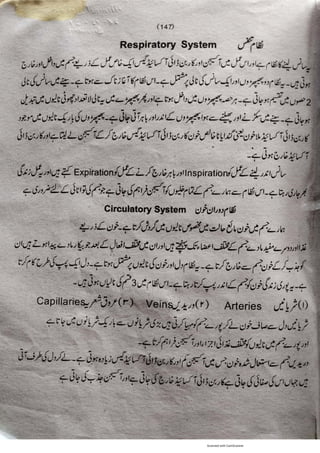 (147)
نظام تنفس Respiratory System
یہ سانس لینے کا نظام ہے اور اس عمل میں آکسیجن اور کاربن ڈائی آکسائیڈ گیس ایک خاص عمل کے ذریعے جسم میں داخل اور خارج
ہوتی ہیں۔ یہ نظام دو پھیپھڑوں اور ایک سانس کی نالی پر مشتمل ہے۔ اس نظام کا آغاز ناک سے ہوتا ہے۔ سینے میں سانس کی نالی
2 حصوں میں تقسیم ہو جاتی ہے۔ ہر حصہ پھیپھڑوں میں داخل ہوتا ہے اور پھر پھیپھڑے میں یہ نالی لاتعداد چھوٹی نالیوں میں تبدیل
ہو جاتی ہے۔ سینے میں سکڑنے اور پھیلنے سے ہوا پھیپھڑوں کے اندر اور باہر آتی جاتی ہے۔ پھیپھڑوں کی باریک نالیوں میں موجود
کاربن ڈائی آکسائیڈ ملا خون یعنی گندا یا ناخالص خون کاربن ڈائی آکسائیڈ گیس خارج کر کے آکسیجن لے لیتا ہے اور کاربن ڈائی
آکسائیڈ خارج ہوتی ہے۔
سانس اندر لینے کے عمل کو Inspiration اور باہر خارج کرنے کے عمل کو Expiration کہتے ہیں اور یہ عمل زندگی
بھر جاری رہتا ہے۔ اس نظام سے ہمارے جسم کے تمام خلیوں کو آکسیجن فراہم کی جاتی ہے جو جسم کی توانائی کے لئے ضروری ہے
نظام دوران خون Circulatory System
ہمارے جسم میں خون مائع حالت میں مخصوص نالیوں میں گردش کرتا ہے۔ خون کے ذریعے
غذا اور دوسرے مفید مادے جسم کے مختلف اعضاء تک پہنچتے ہیں اور ان میں مختلف افعال کے بعد جو بیکار مادے پیدا ہوتے ہیں ان
کو جذب کر کے خون جسم سے خارج کرتا ہے۔ یہ نظام دل اور خون کی نالیوں پر مشتمل ہوتا ہے۔ دل ایک پمپ کی طرح کام کرتا
ہے۔ یہ پوری زندگی خون کو جسم کے اندر پمپ کرتا رہتا ہے۔ اس نظام میں 3 قسم کی نالیاں ہوتی ہیں۔
(۱) شریانیں Arteries (۲) وریدیں Veins (۳) عروق شعریہ Capillaries
شریانیں دل سے صاف خون لے کر پورے جسم کو مہیا کرتی ہیں۔ بڑی شریانوں سے باریک شریانوں میں جاتا ہے
اور پورے جسم میں نالیوں کو مختلف غذائی اجزاء اور آکسیجن فراہم کرتا ہے۔
وریدیں جسم سے استعمال شدہ خون جس میں آکسیجن کم اور کاربن ڈائی آکسائیڈ گیس زیادہ ہوتی ہے۔ لے کر دل کی طرف آتی
ہیں جہاں اس کی صفائی کی جاتی ہے کاربن ڈائی آکسائیڈ خارج کی جاتی ہے اور آکسیجن جذب کی جاتی ہے
Scanned with CamScanner